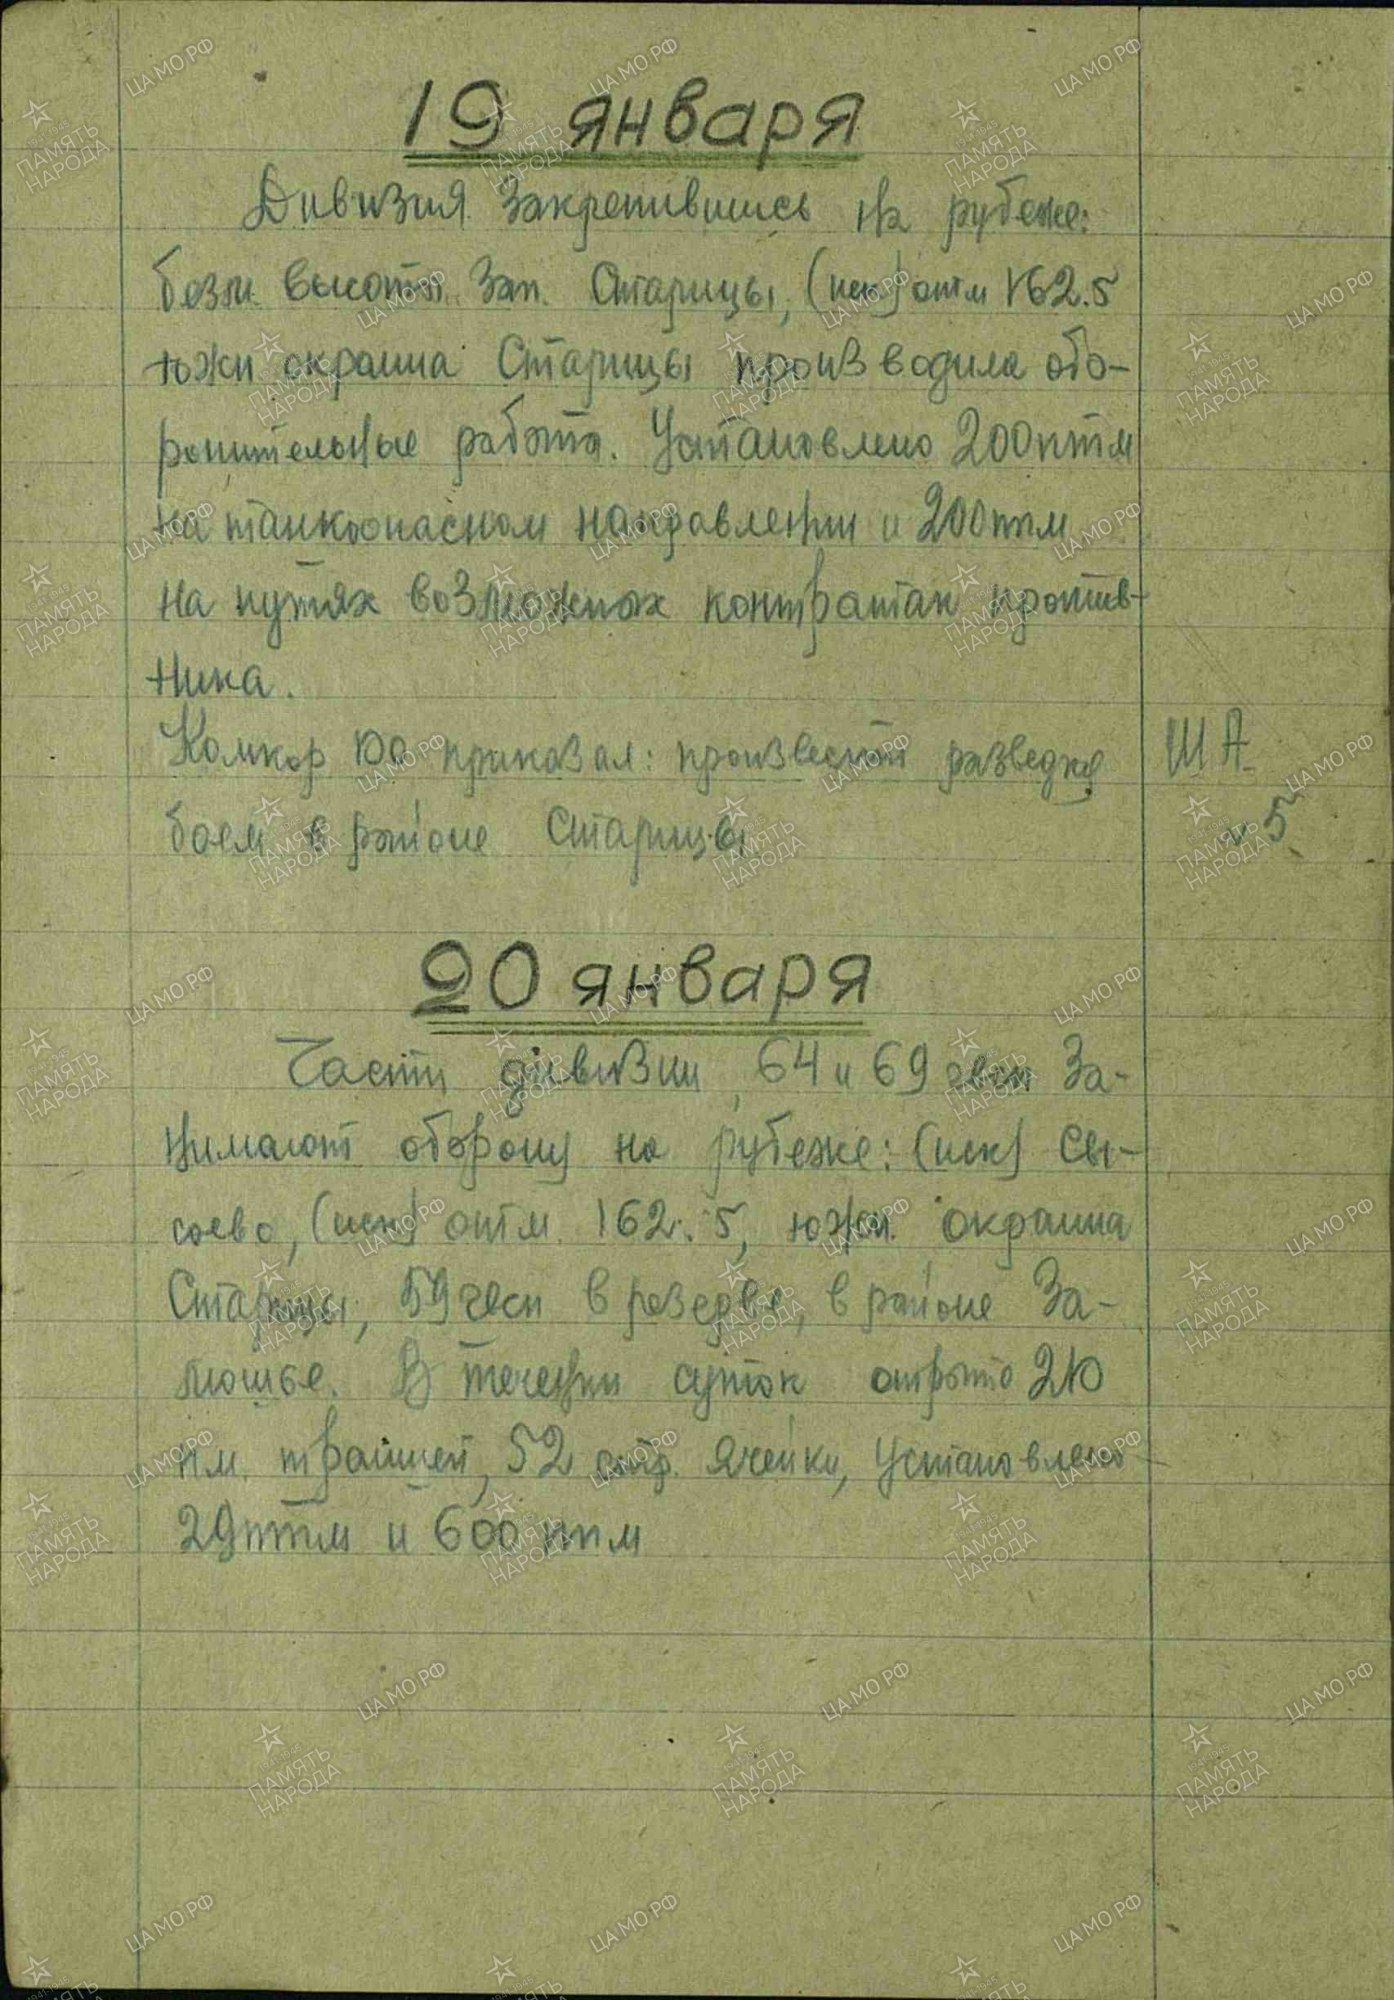 19 января
Дивизия закрепившись на рубеже:
безым. высоты зап. Старицы, (иск) отм 162.5
южн окраина Старицы производила обо-
ронительные работа. Установлено 200 птм
на танкоопасном направлении и 200 ппм
на путях возможных контратак против-
ника.
Комкор 100 приказал: произвести разведку
ША
боем в районе Старицы
№5
20 января
Части дивизии 64 и 69 гвсп за-
нимают оборону на рубеже: (иск) Сы-
соево, (иск) отм. 162.5, южн. окраина
Старицы, 59 гвсп в резерве, в районе За-
мошье. В течении суток открыто 210
п.м. траншей, 52 стр. ячейки, установлено
29 птм и 600 ппм
ЦА МО РФ
ПАМЯТЬ НАРОДА
1941-1945